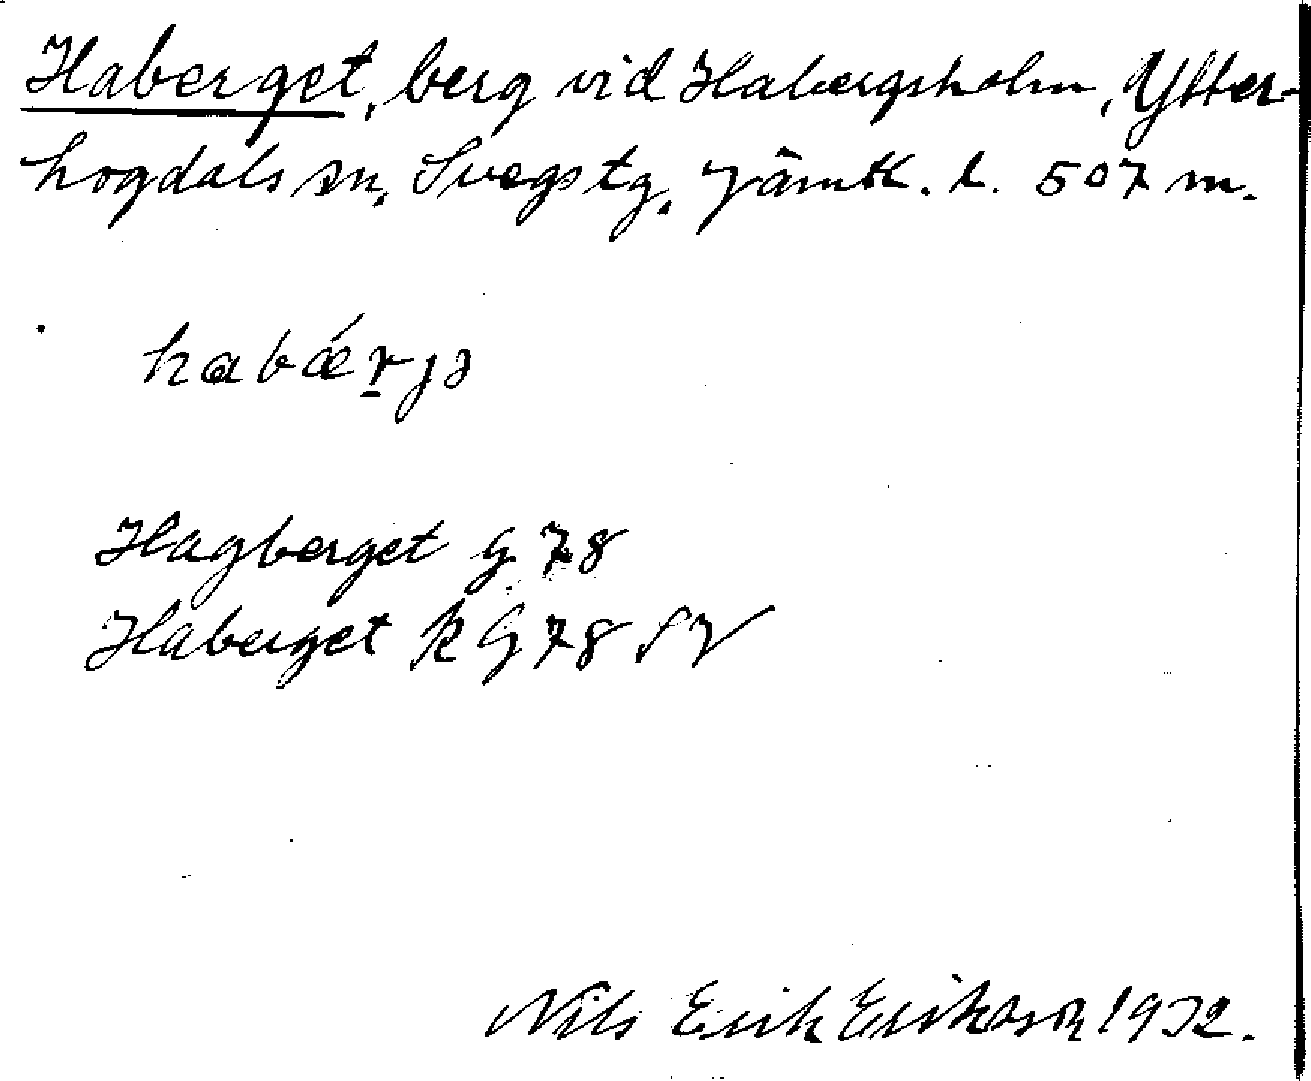 Haberget, berg vid Habergsholm, Ytter-
hogdals sn, Svegs tg, Jämtl. l. 507 m.
habǽr̲jə
Hagberget G 78
Haberget k G 78 SV
Nils Erik Erikson 1932.